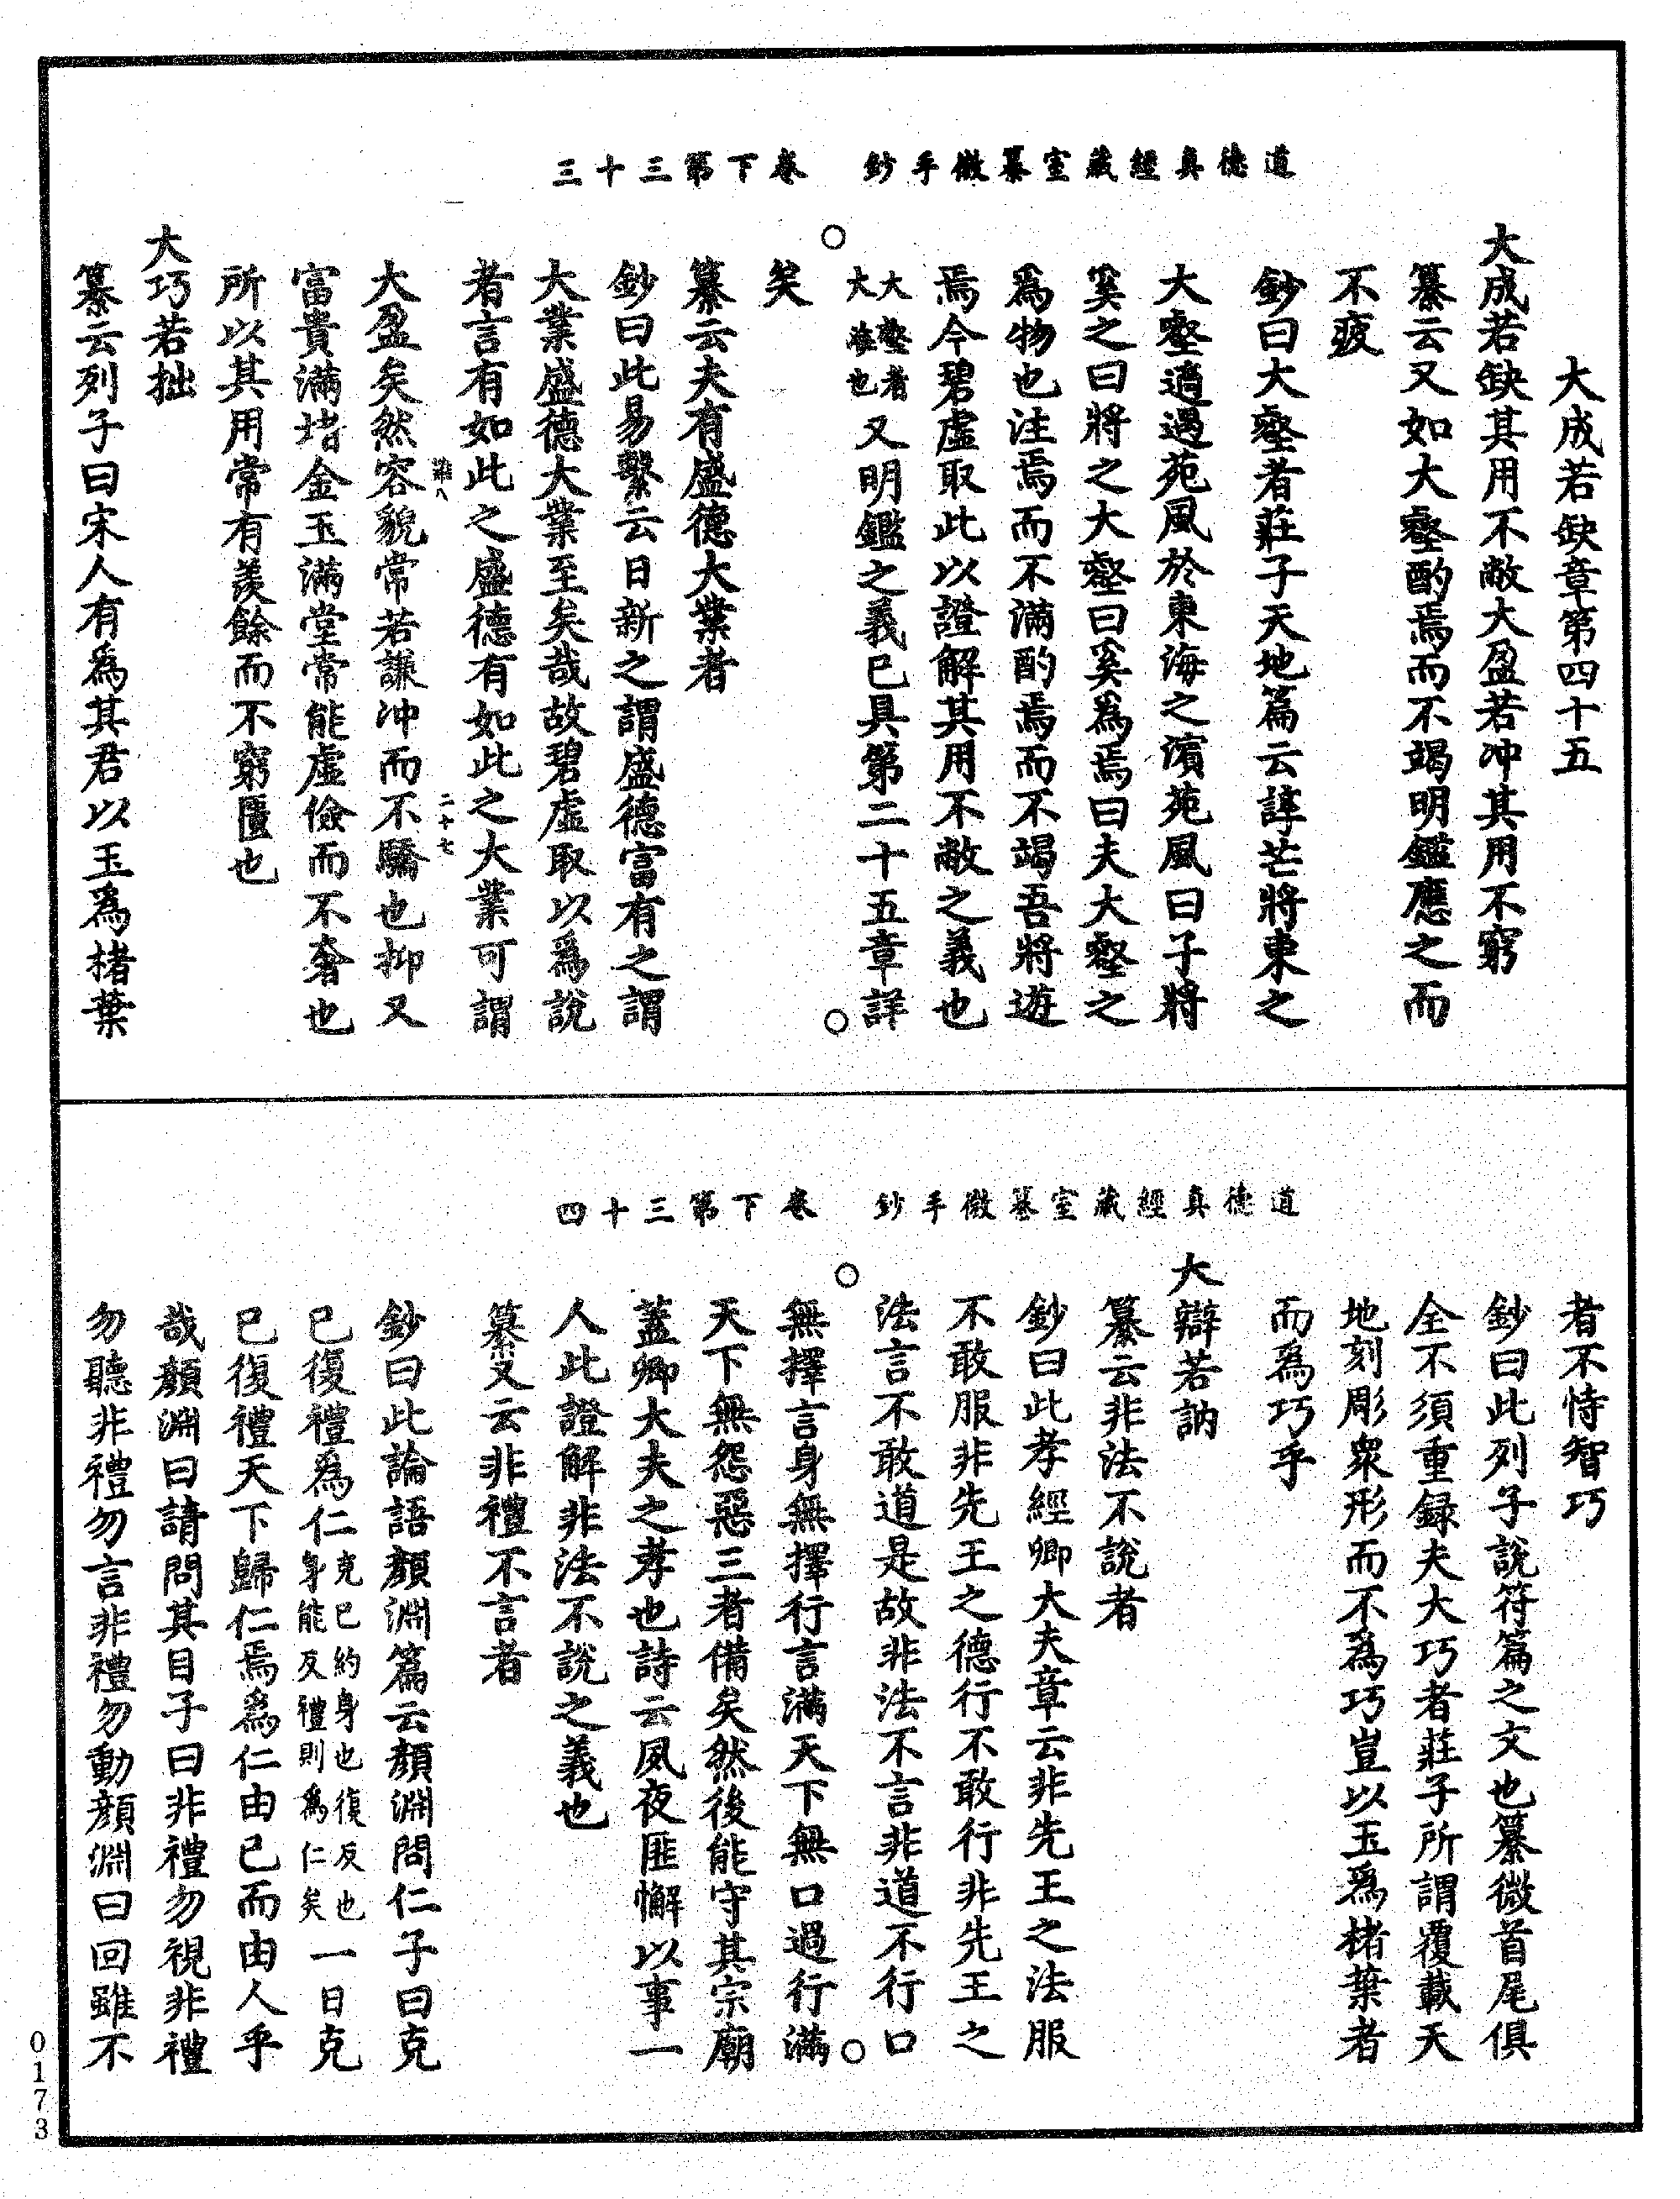 道德真經藏室纂微手鈔　卷下第三十三
大成若缺章第四十五
大成若缺其用不敝大盈若沖其用不窮
纂云又如大壑酌焉而不竭明鑑應之而
不疲
鈔曰大壑者莊子天地篇云諄芒將東之
大壑適遇苑風於東海之濵苑風曰子將
奚之曰將之大壑曰奚爲焉曰夫大壑之
爲物也注焉而不滿酌焉而不竭吾將遊
焉今碧虛取此以證解其用不敝之義也
大壑者
大海也又明鑑之義已具第二十五章詳
矣
纂云夫有盛德大業者
鈔曰此易繫云日新之謂盛德富有之謂
大業盛德大業至矣哉故碧虛取以爲說
者言有如此之盛德有如此之大業可謂
二十七
大盈矣然容貌常若謙沖而不驕也抑又
富貴滿堵金玉滿堂常能虛儉而不奢也
所以其用常有羨餘而不窮匱也
大巧若拙
纂云列子曰宋人有爲其君以玉爲楮葉
道德真經藏室纂微手鈔　卷下第三十四
者不恃智巧
鈔曰此列子說符篇之文也纂微首尾俱
全不須重録夫大巧者莊子所謂覆載天
地刻彫衆形而不爲巧豈以玉爲楮葉者
而爲巧乎
大辯若訥
纂云非法不說者
鈔曰此孝經卿大夫章云非先王之法服
不敢服非先王之德行不敢行非先王之
法言不敢道是故非法不言非道不行口
無擇言身無擇行言滿天下無口過行滿
天下無怨惡三者備矣然後能守其宗廟
蓋卿大夫之孝也詩云夙夜匪懈以事一
人此證解非法不說之義也
纂又云非禮不言者
鈔曰此論語顏淵篇云顏淵問仁子曰克
己復禮爲仁克己約身也復反也身能反禮則爲仁矣一日克
己復禮天下歸仁焉爲仁由己而由人乎
哉顏淵曰請問其目子曰非禮勿視非禮
勿聽非禮勿言非禮勿動顏淵曰回雖不
0173